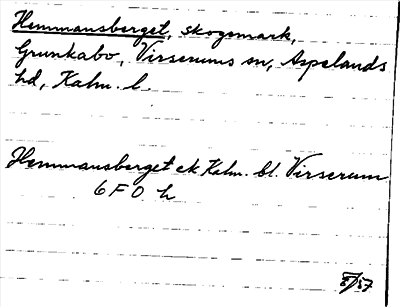 Hemmansberget, skogsmark,
Grunkabo, Virserums sn, Aspelands
hd, Kalm. l.
Hemmansberget ek Kalm. bl. Virserum
6 F 0 h
/57